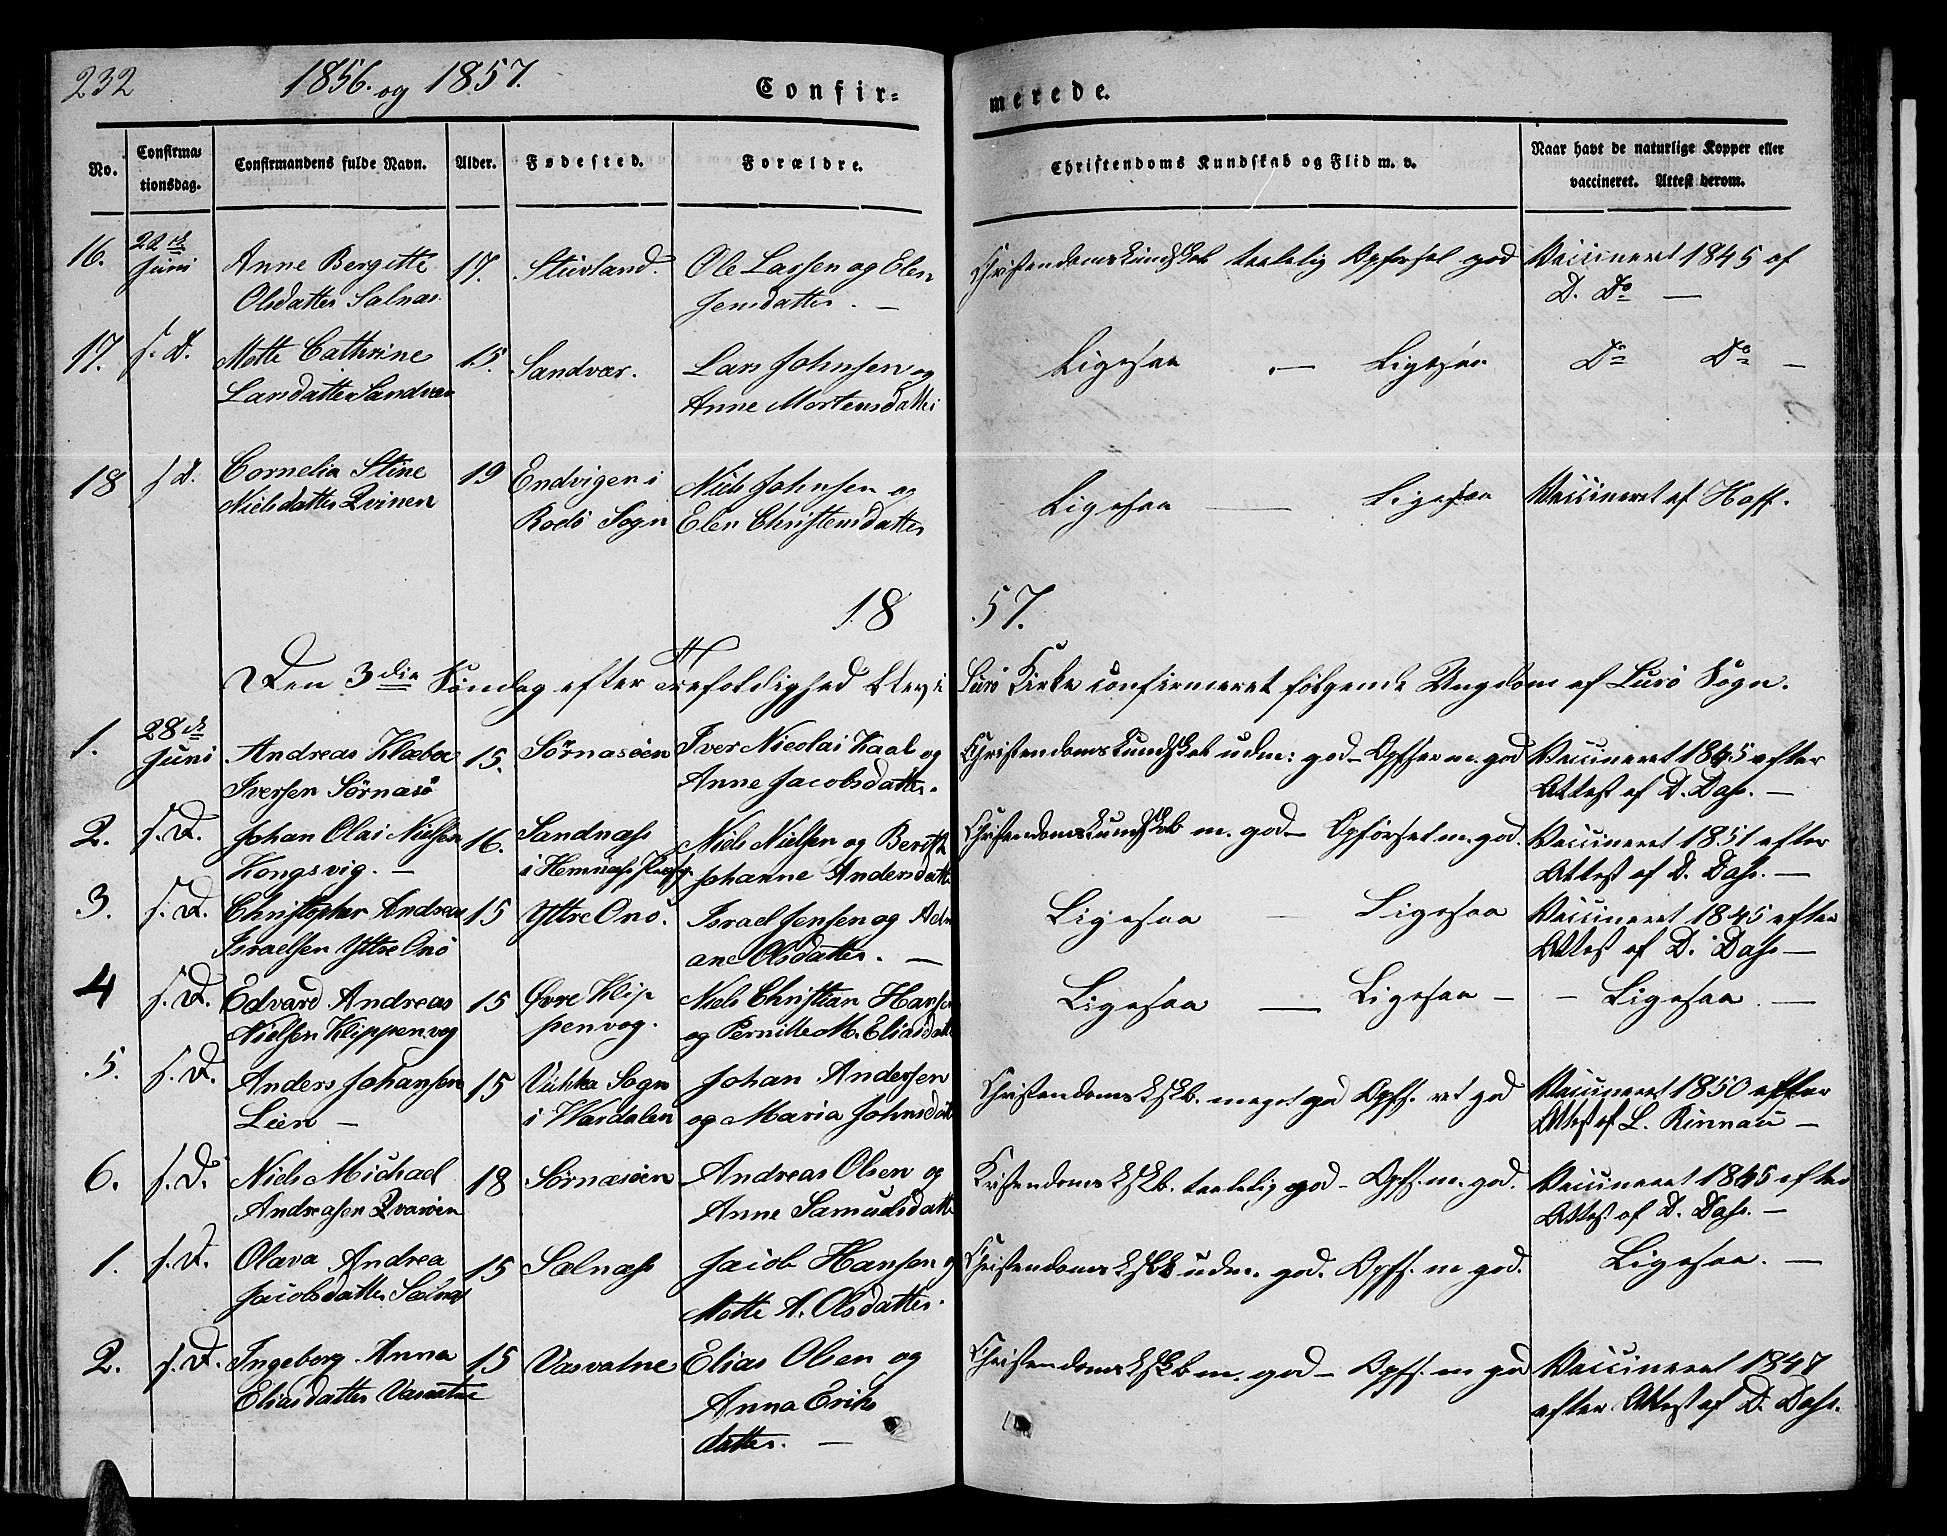 232
1856. og 1857.
Confir-
merede.
No.
Confirma-
tionsdag.
Confirmandens fulde Navn.
Alder.
Fødested.
Forældre.
Christendoms Kundskab og Flid m. v.
Naar havt de naturlige Kopper eller
vaccineret. Attest herom.
16. 22de Juni
Anne Bergitte
Olsdatter Selnæs
17.
Stuvland.
Ole Larsen og Elen
Jensdatter. —
Christendomskundskab taalelig Opførsel god
Vaccineret 1845 af
D. Do —
17. s. D.
Mette Cathrine
Larsdatter Sandvær
15.
Sandvær.
Lars Johnsen og
Anne Mortensdatter
Ligesaa — Ligesaa
Do Do —
18 s. D.
Cornelia Stine
Nielsdatter Qvinen
19
Endvigen i
Rodö Sogn
Niels Johnsen og
Elen Christensdatter
Ligesaa — Ligesaa
Vaccineret af Hoff.
18
57.
Den 3die Søndag efter Trefoldighed blev i
Lurö Kirke confirmeret følgende Ungdom af Lurö Sogn.
1. 28de Juni
Andreas Klæboe
Iversen Sørnæsö
15.
Sørnæsöen
Iver Nicolai Zaal og
Anne Jacobsdatter.
Christendomskundskab udm: god — Opførs m. god
Vaccineret 1845 efter
Attest af D. Dass. —
2. s. D.
Johan Olai Nielsen
Kongsvig. —
16.
Sandnæss
i Hemnæss Præstg.
Niels Nielsen og Berith
Johanne Andersdatt
Christendomskundskab m. god — Opførsel m. god.
Vaccineret 1851 efter
Attest af D. Dass. —
3. s. D.
Christopher Andreas
Israelsen Yttre Onö
15
Yttre Onö.
Israel Jensen og
ane Olsdatter. —
Ligesaa — Ligesaa
Vaccineret 1845 efter
Attest af D. Dass —
4 s. D.
Edvard Andreas
Nielsen Klippenvog
15
Øvre Klip
penvog.
Niels Christian Hansen
og Pernille M. Eliasdatt
Ligesaa — Ligesaa —
— Ligesaa. —
5. s. D.
Anders Johansen
Lien —
15
Vukka Sogn
i Værdalen
Johan Andersen
og Maria Johnsdatt
Christendomskskb. meget god Opfs. ret god
Vaccineret 1850 efter
Attest af L. Rinnau —
6. s. D.
Niels Michael
Andreasen Qvaröen
18
Sørnæsöen
Andreas Olsen og
Anne Samuelsdatt
Kristendomskskb. taalelig god — Opfs. m. god.
Vaccineret 1845 efter
Attest af D. Dass. —
1. s. D.
Olava Andrea
Jacobsdatter Selnæs
15
Selnæss
Jacob Hansen og
Mette A. Olsdatter.
Christendomskskb udm. god. Opfs. m god.
Ligesaa. —
2. s. D.
Ingeborg Anna
Eliasdatter Vasvatne
15
Vasvatne
Elias Olsen og
Anna Eriks
datter. —
Christendomskskb m. god — Opfs. m god
Vaccineret 1847
efter Attest af D. Dass.